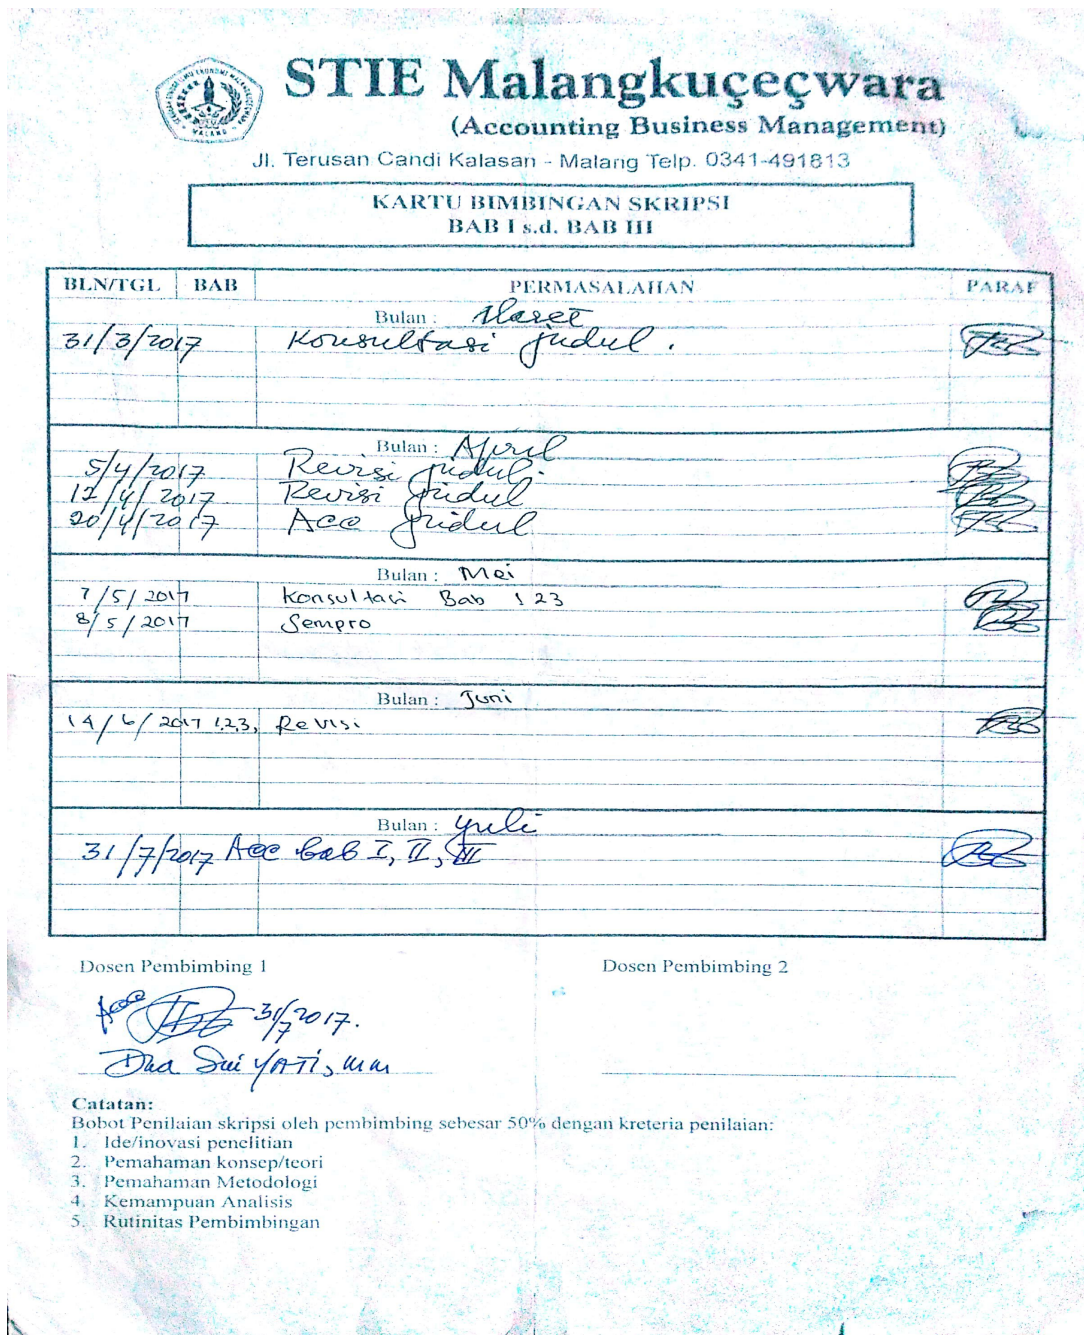 STIE Malangkuçeçwara
(Accounting Business Management)
Jl. Terusan Candi Kalasan - Malang Telp. 0341-491813
KARTU BIMBINGAN SKRIPSI
BAB I s.d. BAB III
BLN/TGL BAB PERMASALAHAN PARAF
Bulan : Maret
31/3/2017 Konsultasi judul .
Bulan : April
5/4/2017 Revisi judul.
12/4/2017 Revisi judul
20/4/2017 Acc judul
Bulan : Mei
7/5/2017 Konsultasi Bab 1 2 3
8/5/2017 Sempro
Bulan : Juni
14/6/2017 1,2,3, Revisi
Bulan : Juli
31/7/2017 Acc bab I, II, III
Dosen Pembimbing 1 Dosen Pembimbing 2
Acc 31/7 2017.
Dra Sri YATI, MM
Catatan:
Bobot Penilaian skripsi oleh pembimbing sebesar 50% dengan kreteria penilaian:
1. Ide/inovasi penelitian
2. Pemahaman konsep/teori
3. Pemahaman Metodologi
4. Kemampuan Analisis
5. Rutinitas Pembimbingan